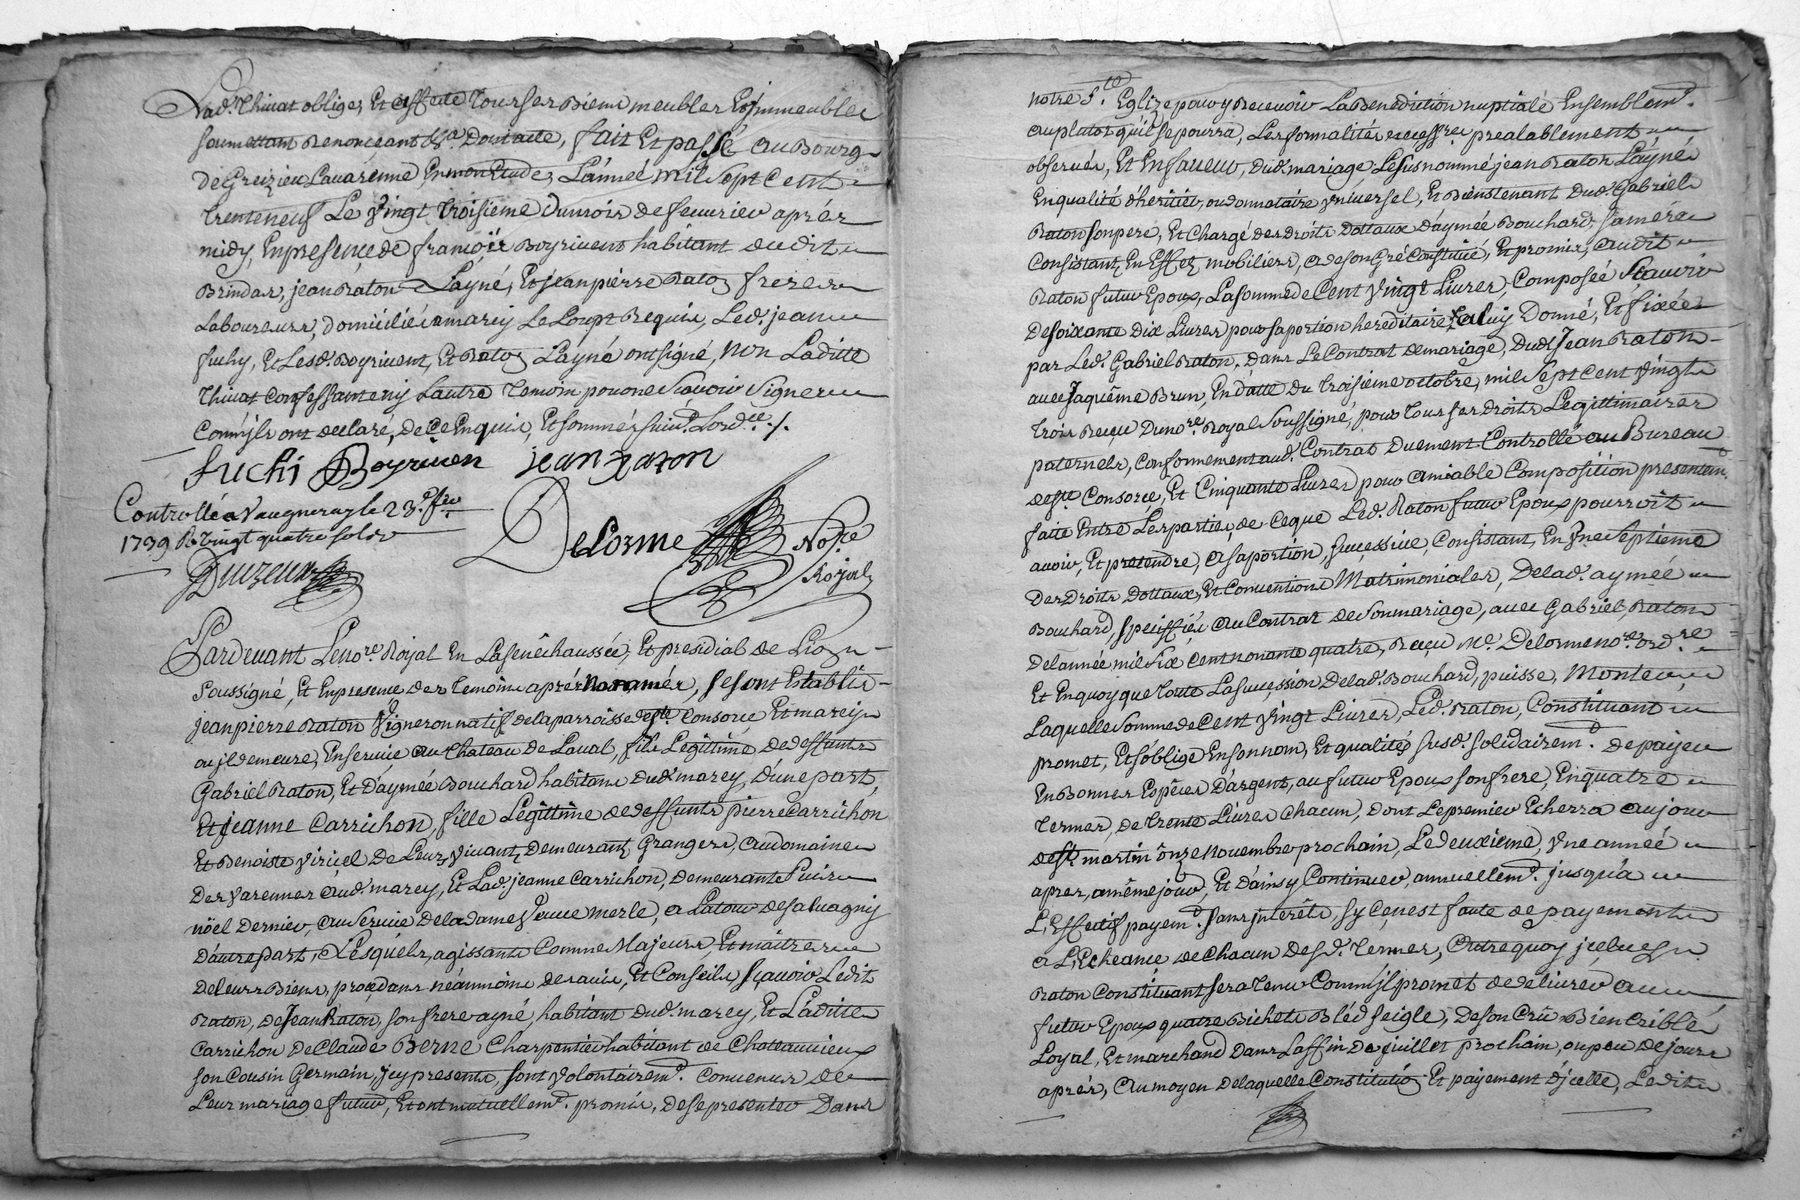 Lad. Thivat obliger, Et affecte Tous ses Biens meubles Et jmmeubles
soumettant Renonçant &a. Dont acte, fait Et passé au Bourg
de Greizieu Lavarenne En mon Etude, L'année Mil Sept Cent
trente neuf Le vingt troisieme du mois de feuvrier aprés
midy, En presence de françois Boyrivent habitant dudit
Brindas, jean Raton Layné, Et jean pierre Raton freres
Laboureurs, domiciliés a marcy Le Loup Requis, Led. jean
fuchy, Et Lesd. Boyrivent, Et Raton Layné ont signé, non Laditte
Thivat Confessante ny L'autre Temoin pour ne Sçavoir Signer
Comm'jls ont declaré, de Ce Enquis, Et sommés suiv.t L'ord.ce ./.
fuchi Boyriven jean raton
Controllé a Vaugneray le 23.e fev.
1739 R. vingt quatre sols
Delorme No.re
Royal
Pardevant Le no.re Royal En La senêchaussée, Et presidial de Lion
soussigné, Et En presence des temoins aprés Nommés, se sont Establis
jean pierre Raton Vigneron natif de la parroisse de s.te Consorce Et marcy
ou jl demeure, En service au Chateau de Laval, fils Legittime de deffunts
Gabriel Raton, Et D'aymée Bouchard habitans dud. marcy, D'une part,
Et jeanne Carrichon, fille Légittime de deffunts pierre Carrichon
Et Benoiste Viricel De Leur Vivant Demeurant Grangers, au domaine
Des Varennes aud. marcy, Et Lad. jeanne Carrichon, demeurante Puis
nöel Dernier, au service De la dame Veuve Merle, a Latour de salvagny
D'autre part, Lesquels, agissants Comme Majeurs, Et maîtres
de leurs Biens, procédans néanmoins de l'avis, Et Conseils Sçavoir Ledit
Raton, de Jean Raton, son frere ayné, habitant dud. marcy, Et Laditte
Carrichon de Claude Berne Charpentier habitant de Chateauvieux
son Cousin Germain, jcy presents, sont Volontairem.t Convenus de
Leur mariage futur, Et ont mutuellem.t promis, de se presenter Dans
notre S.te Eglize pour y Recevoir La Benediction nuptiale Ensemblem.t
au plutot qu'jl se pourra, Les formalités necessres prealablement
observés, Et En faveur, dud. mariage Le susnommé jean Raton Layné
En qualité d'heritier, ou donnataire vniversel, Et Bienstenant dud. Gabriel
Raton son pere, Et Chargé des droits dottaux D'aymée Bouchard, sa mére
Consistant En Effets mobiliers, a de son Gré Constitué, Et promis, audit
Raton futur Epoux, La somme de Cent vingt Livres, Composée Sçavoir
De soixante dix Livres pour sa portion hereditaire, a luy Donné, Et fixée
par Led. Gabriel Raton, dans Le Contrat de mariage, dud. Jean Raton
avec Jaquême Brun, En datte du troisieme octobre, mil Sept cent vingt
trois Reçu du no.re Royal Soussigné, pour tous ses droits Legittimaires
paternels, Conformement aud. Contrat duement Controllé au Bureau
de s.te Consorce, Et Cinquante Livres pour amiable Composition presentem.t
faite Entre Les parties, de Ceque Led. Raton futur Epoux pourroit
avoir, Et pretendre, a sa portion, successive, Consistant, En vne Septieme
Des Droits dottaux, Et Conventions Matrimoniales, De lad. aymée
Bouchard, speciffiés au Contrat de son mariage, avec Gabriel Raton
de l'année mil six cent nonante quatre, Reçu M.e Delorme no.re ord.re
Et En quoy que toute La succession De lad. Bouchard, puisse, Monter
Laquelle Somme de Cent vingt Livres, Led. Raton, Constituant
promet, Et s'oblige En son nom, Et qualités susd. solidairem.t De payer
En Bonnes Espéces D'argent, au futur Epoux son frere, En quatre
termes, de trente Livres Chacun, dont Le premier Echerra au jour
de s.t martin ônze Novembre prochain, Le deuxiéme, vne année
apres, a même jour, Et d'ainsy Continuer, annuellem.t jusqu'a
L'Effectif payem.t Sans jnterêts, sy Ce n'est faute de payement
a L'Echeance de Chacun desd. termes, outre quoy jceluy
Raton Constituant sera tenu Comm'jl promet de delivrer au
futur Epoux quatre Bichets Bléd seigle, de son Crû Bien Criblé
Loyal, Et marchand dans La ffin de juillet prochain, ou peu de jours
aprés, au moyen de laquelle Constitution Et payement d'jcelle, Ledit